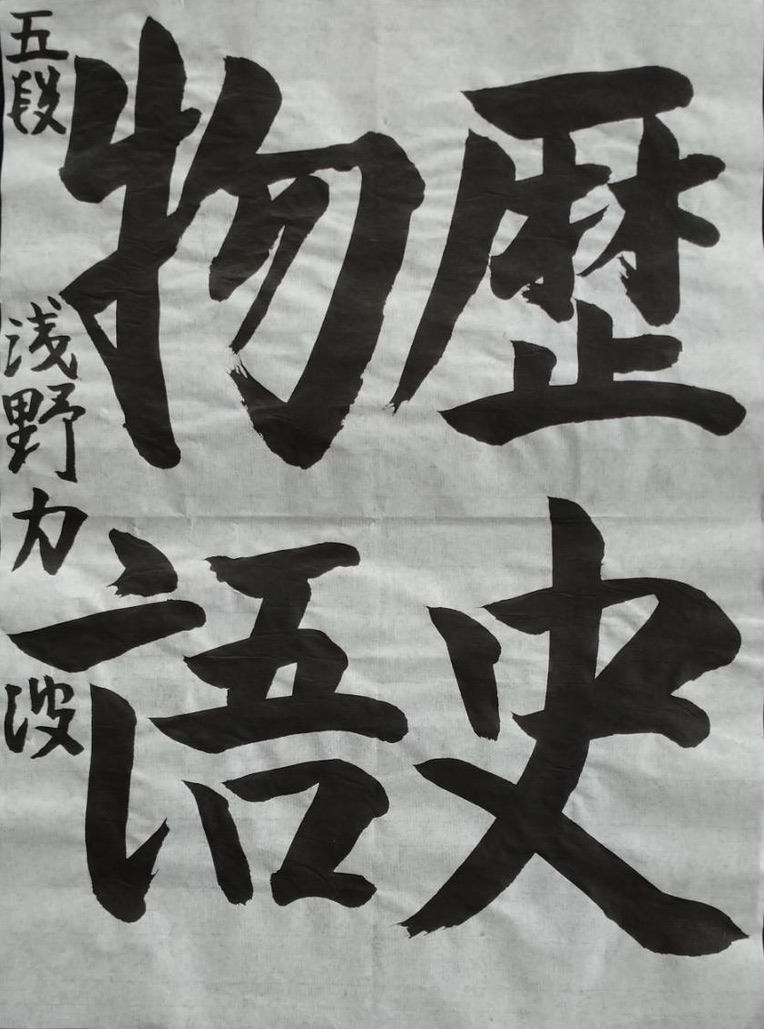 歴史
物語
五段 浅野力波